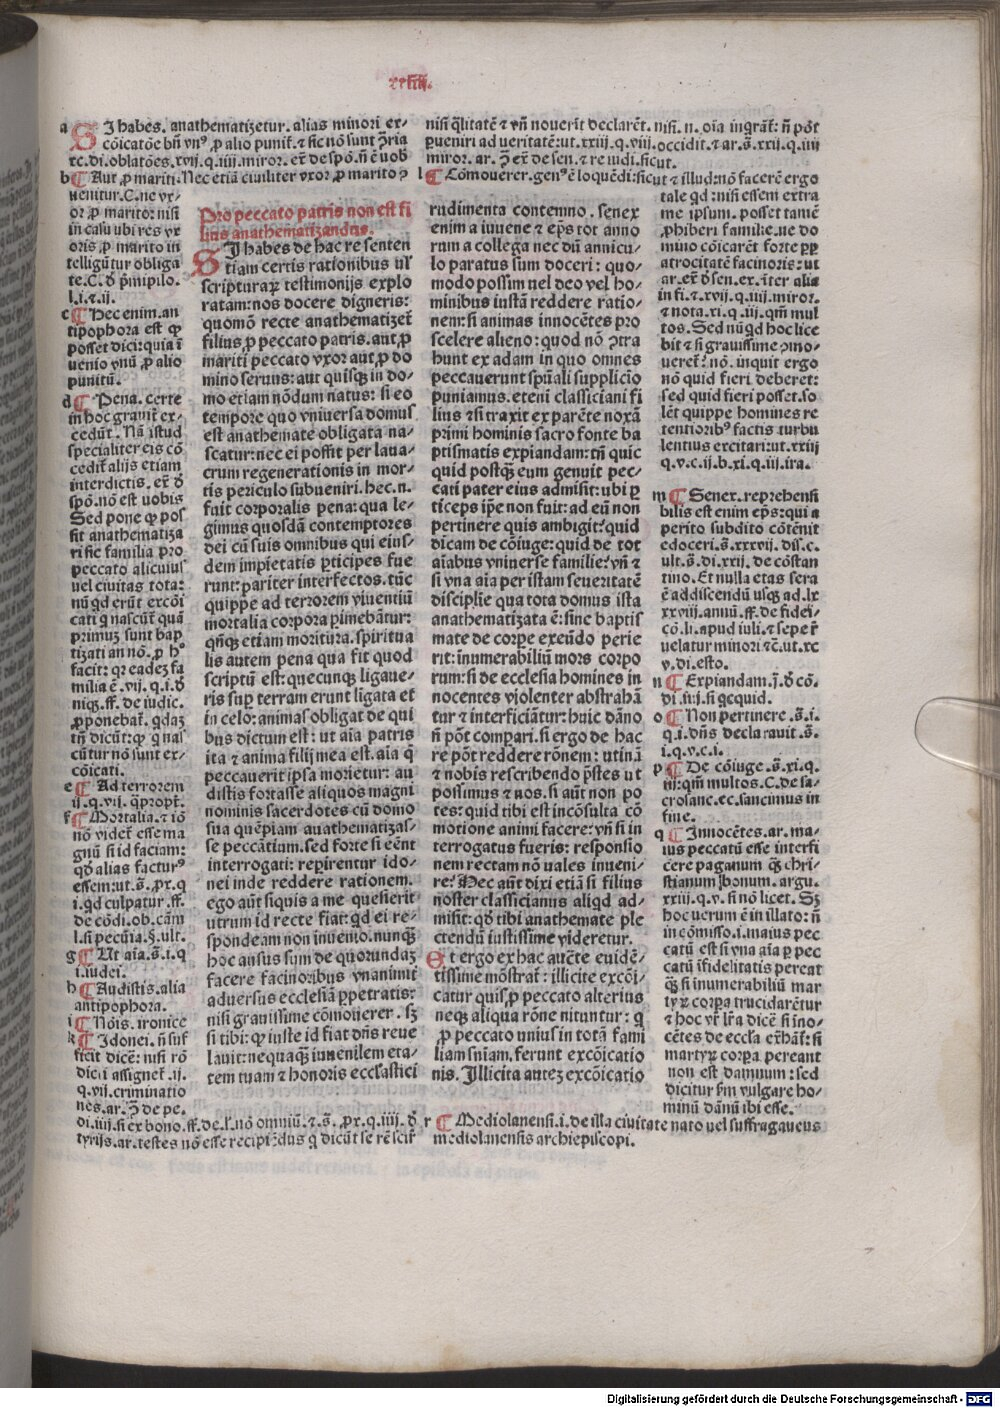 xxiiii.
a SI habes. anathematizetur. alias minori ex-
cōicatōe bn̄ vnꝰ ꝓ alio punit᷑. ⁊ sic nō sunt ꝯ̄ria
xc. di. oblatōes. xvij. q. iiij. miror. et᷑ de spō. n̄ ē vob
b ¶ Aut ꝓ mariti. Nec etiā ciuiliter vxor ꝓ marito ꝯ
uenitur. C. ne vx-
or ꝓ marito: nisi
in casu ubi res vx
oris ꝓ marito in
telligūtur obliga
te. C. ð pͥmipilo.
l. i. ⁊ ii.
c ¶ Hec enim. an
tipophora est qꝫ
posset dici: quia ī
uenio vnū ꝓ alio
punitū.
d ¶ Pena. certe
in hoc grauit᷑ ex-
cedūt. Nā istud
specialiter eis cō
cedit᷑ alijs etiam
interdictis. et᷑ ð
spō. nō est uobis
Sed pone qꝫ pos
sit anathematiza
ri sic familia pro
peccato alicuius
uel ciuitas tota:
nūqd erūt excōi
cati q nascūt᷑ quā
primuꝫ sunt bap
tizati an nō. ꝓ hͦ
facit: qꝛ eadeꝫ fa
milia ē. vij. q. i. ð
niqꝫ. ff. de iudic.
ꝓponebat᷑. qdaꝫ
tn̄ dicūt: qꝫ q nas
cūtur nō sunt ex-
cōicati.
e ¶ Ad terrorem
ij. q. vij. q̄propt᷑.
f ¶ Mortalia. ⁊ iō
nō videt᷑ esse ma
gnū si id faciam:
qð alias facturꝰ
essem: ut. s̄. ꝓx. q
i. qd culpatur. ff.
de cōdi. ob. cām
l. si pecūia. §. ult.
g ¶ Ut aīa. s̄. i. q
i. iudei.
h ¶ Audistis. alia
antipophora.
i ¶ Nōis. ironice
k ¶ Idonei. n̄ suf
ficit dicē: nisi rō
dicti assignet᷑. ij.
q. vii. criminatio
nes. ar. ꝯ̄ de pe.
di. iiij. si ex bono. ff. de. l. nō omniū. ⁊. s̄. ꝓx. q. iiij. ð
tyrijs. ar. testes nō esse recipiēdus q dicūt se rē scir᷑
Pro peccato patris non est fi
lius anathematizandus.
SI habes de hac re senten
tiam certis rationibus ul᷑
scripturaꝝ testimonijs explo
ratam: nos docere digneris:
quomō recte anathematizet᷑
filius ꝓ peccato patris. aut ꝓ
mariti peccato vxor aut ꝓ do
mino seruus: aut quisqꝫ in do-
mo etiam nōdum natus: si eo
tempore quo vniuersa domus
est anathemate obligata na-
scatur: nec ei possit per laua-
crum regenerationis in mor-
tis periculo subueniri. hec. n.
fuit corporalis pena: qua le-
gimus quosdā contemptores
dei cū suis omnibus qui eius-
dem impietatis ꝑticipes fue
runt: pariter interfectos. tūc
quippe ad terrorem viuentiū
mortalia corpora ꝑimebātur:
qn̄qꝫ etiam moritura. spiritua
lis autem pena qua fit quod
scriptū est: quecunqꝫ ligaue-
ris suꝑ terram erunt ligata et
in celo: animas obligat de qui
bus dictum est: ut aīa patris
ita ⁊ anima filij mea est. aīa q̄
peccauerit ipsa morietur: au
distis fortasse aliquos magni
nominis sacerdotes cū domo
sua quēpiam anathematizas-
se peccātium. sed forte si eēnt
interrogati: reꝑirentur ido-
nei inde reddere rationem.
ego aūt siquis a me quesierit
utrum id recte fiat: qd ei re-
spondeam non inuenio. nunqꝫ
hoc ausus sum de quorundaꝫ
facere facinoribus vnanimit᷑
aduersus ecclesiā ꝑpetratis:
nisi grauissime cōmouerer. sꝫ
si tibi: qꝫ iuste id fiat dn̄s reue
lauit: nequaqꝫ iuuenilem eta-
tem tuam ⁊ honoris ecclastici
nisi q̄litatē ⁊ vn̄ nouerīt declarēt. nisi. n. oīa ingrāt᷑: n̄ pōt
ꝑueniri ad ueritatē: ut. xxij. q. viij. occidit. ⁊ ar. s̄. xxij. q. iiij
miror. ar. ꝯ̄ et᷑ de sen. ⁊ re iudi. sicut.
l ¶ Cōmouerer. genꝰ ē loquēdi: sicut ⁊ illud: nō facerē ergo
rudimenta contemno. senex
enim a iuuene ⁊ ep̄s tot anno
rum a collega nec dū annicu-
lo paratus sum doceri: quo-
modo possim uel deo vel ho-
minibus instā reddere ratio-
nem: si animas innocētes pro
scelere alieno: quod nō ꝯtra
hunt ex adam in quo omnes
peccauerunt spūali supplicio
puniamus. eteni classiciani fi
lius ⁊ si traxit ex parēte noxā
primi hominis sacro fonte ba
ptismatis expiandam: tn̄ quic
quid postqꝫ eum genuit pec-
cati pater eius admisit: ubi ꝑ
ticeps ip̄e non fuit: ad eū non
pertinere quis ambigit: quid
dicam de cōiuge: quid de tot
aīabus vniuerse familie: vn̄ ⁊
si vna aīa per istam seueritatē
disciplīe qua tota domus ista
anathematizata ē: sine baptis
mate de corpe exeūdo perie
rit: īnumerabiliū mors corpo
rum: si de ecclesia homines in
nocentes violenter abstrahā
tur ⁊ interficiātur: huic dāno
n̄ pōt compari. si ergo de hac
re pōt reddere rōnem: utinā
⁊ nobis rescribendo p̄stes ut
possimus ⁊ nos. si aūt non po
tes: quid tibi est incōsulta cō
motione animi facere: vn̄ si in
terrogatus fueris: responsio
nem rectam nō vales inueni-
re? Hec aūt dixi etiā si filius
noster classicianus aliqd ad-
misit: qð tibi anathemate ple
ctendū iustissime videretur.
Et ergo ex hac auēte euidē-
tissime mōstrat᷑: illicite excōi-
catur quis ꝓ peccato alterius
neqꝫ aliqua rōne nituntur: q
ꝓ peccato unius in totā fami
liam sn̄iam. ferunt excōicatio
nis. Illicita auteꝫ excōicatio
tale qd: nisi essem extra
me ipsum. posset tamē
ꝓhiberi familie. ne do
mino cōicarēt forte ꝓꝑ
atrocitatē facinoris: ut
ar. et᷑ ð sen. ex. īter alia
in fi. ⁊. xvij. q. iiij. miror.
⁊ nota. xi. q. iij. qm̄ mul
tos. Sed nūqd hoc lice
bit ⁊ si grauissime ꝯmo-
ueret᷑: nō. inquit ergo
nō quid fieri deberet:
sed quid fieri posset. so
lēt quippe homines re
tentioribꝰ factis turbu
lentius excitari: ut. xxiij
q. v. c. ij. b. xi. q. iij. ira.
m ¶ Senex. reprehensi
bilis est enim ep̄s: qui a
perito subdito cōtēnit
edoceri. s̄. xxxvij. dis. c.
ult. s̄. di. xxij. de cōstan
tino. Et nulla etas sera
ē addiscendū usqꝫ ad. lx
xxviij. annū. ff. de fidei-
cō. li. apud iuli. ⁊ sepe r᷑
uelatur minori ⁊c̄. ut. xc
v. di. esto.
n ¶ Expiandam. j̄. ð cō.
di. iij. si qcquid.
o ¶ Non pertinere. s̄. i.
q. i. dn̄s declarauit. s̄.
i. q. v. c. i.
p ¶ De cōiuge. s̄. xi. q.
iij: qm̄ multos. C. de sa-
crosanc. ec. sancimus in
fine.
q ¶ Innocētes. ar. ma-
ius peccatū esse interfi
cere paganum qꝫ chri-
stianum bonum. argu.
xxiii. q. v. si nō licet. Sꝫ
hoc uerum ē in illato: n̄
in cōmisso. i. maius pec
catū est si vna aīa ꝑ pec
catū īfidelitatis percat
qꝫ si inumerabiliū mar
tyꝝ corpa trucidarētur
⁊ hoc vr᷑ lr̄a dicē si īno-
cētes de eccla et᷑hāt᷑: si
martyꝝ corpa pereant
non est damnum: sed
dicitur ẜm vulgare ho-
minū dānū ibi esse.
r ¶ Mediolanensi. i. de illa ciuitate nato uel suffraganeus
mediolanensis archiepiscopi.
Digitalisierung gefördert durch die Deutsche Forschungsgemeinschaft - DFG